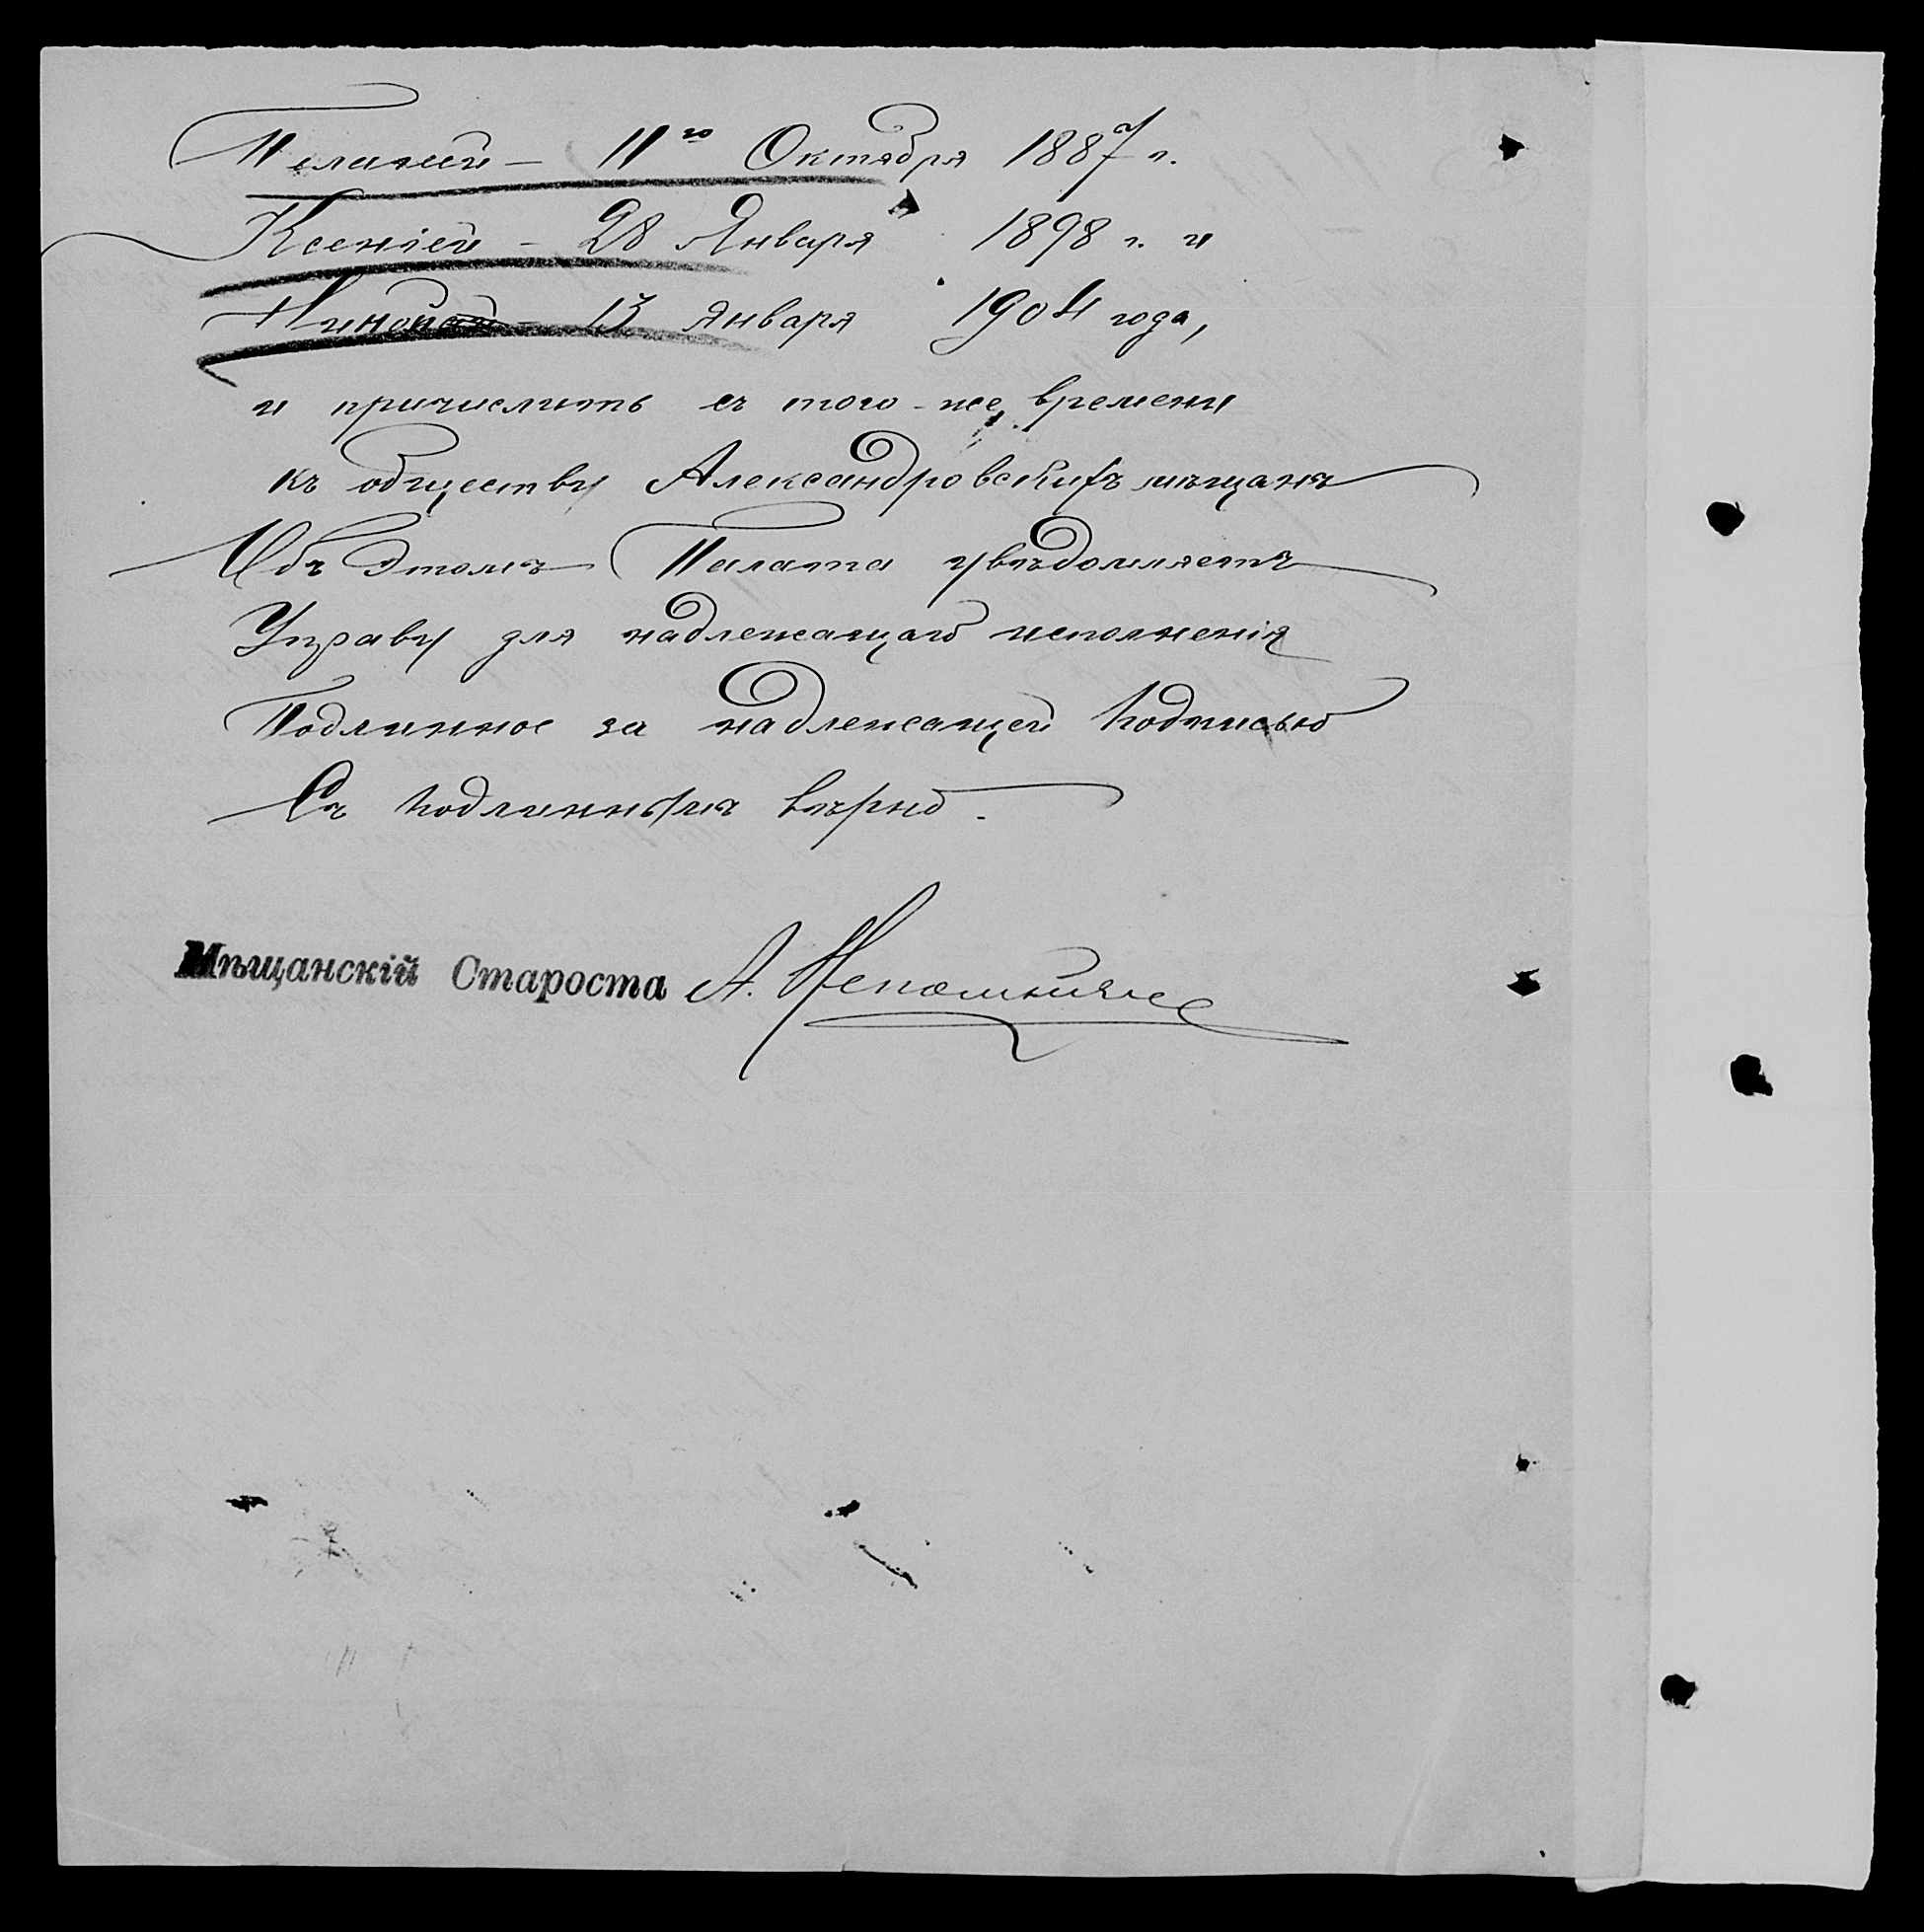 Пелагеи – 11го Октября 1887 г.
Ксеніей – 28 Января 1898 г. и
Ниной – 13 Января 1904 года,
и причислить съ того-же времени
къ обществу Александровскихъ мѣщанъ
Объ этомъ Палата увѣдомляетъ
Управу для надлежащаго исполненія
Подлинное за надлежащей подписью
Съ подлиннымъ вѣрно.
Мѣщанскій Староста А.